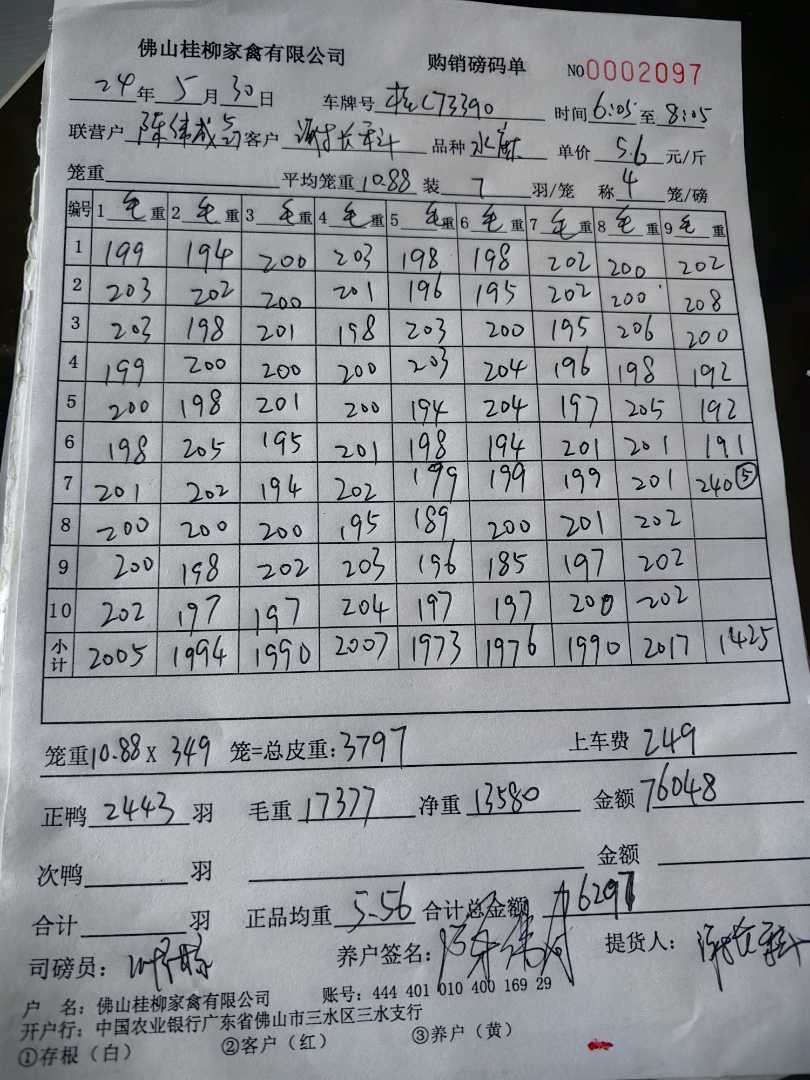 佛山桂柳家禽有限公司 购销磅码单 NO 0002097
24年5月30日 车牌号 C73390 时间6:05至8:05
联营户 陈伟成 客户 品种 水麻 单价 5.6 元/斤
笼重 平均笼重10.88 装 7 羽/笼 称 4 笼/磅
编号 1 毛 重 2 毛 重 3 毛 重 4 毛 重 5 毛 重 6 毛 重 7 毛 重 8 毛 重 9 毛 重
1 199 194 200 203 198 198 202 200 202
2 203 202 200 201 196 195 202 200 208
3 203 198 201 198 203 200 195 206 200
4 199 200 200 200 203 204 196 198 192
5 200 198 201 200 194 204 197 205 192
6 198 205 195 201 198 194 201 201 191
7 201 202 194 202 199 199 199 201 240 ⑤
8 200 200 200 195 189 200 201 202
9 200 198 202 203 196 185 197 202
10 202 197 197 204 197 197 200 202
小计 2005 1994 1990 2007 1973 1976 1990 2017 1425
笼重10.88 X 349 笼=总皮重:3797 上车费 249
正鸭 2443 羽 毛重 17377 净重 13580 金额 76048
次鸭 羽 金额
合计 羽 正品均重 5.56 合计总金额 76297
司磅员: 养户签名: 提货人:
户 名: 佛山桂柳家禽有限公司 账号: 444 401 010 400 169 29
开户行: 中国农业银行广东省佛山市三水区三水支行
①存根(白) ②客户(红) ③养户(黄)